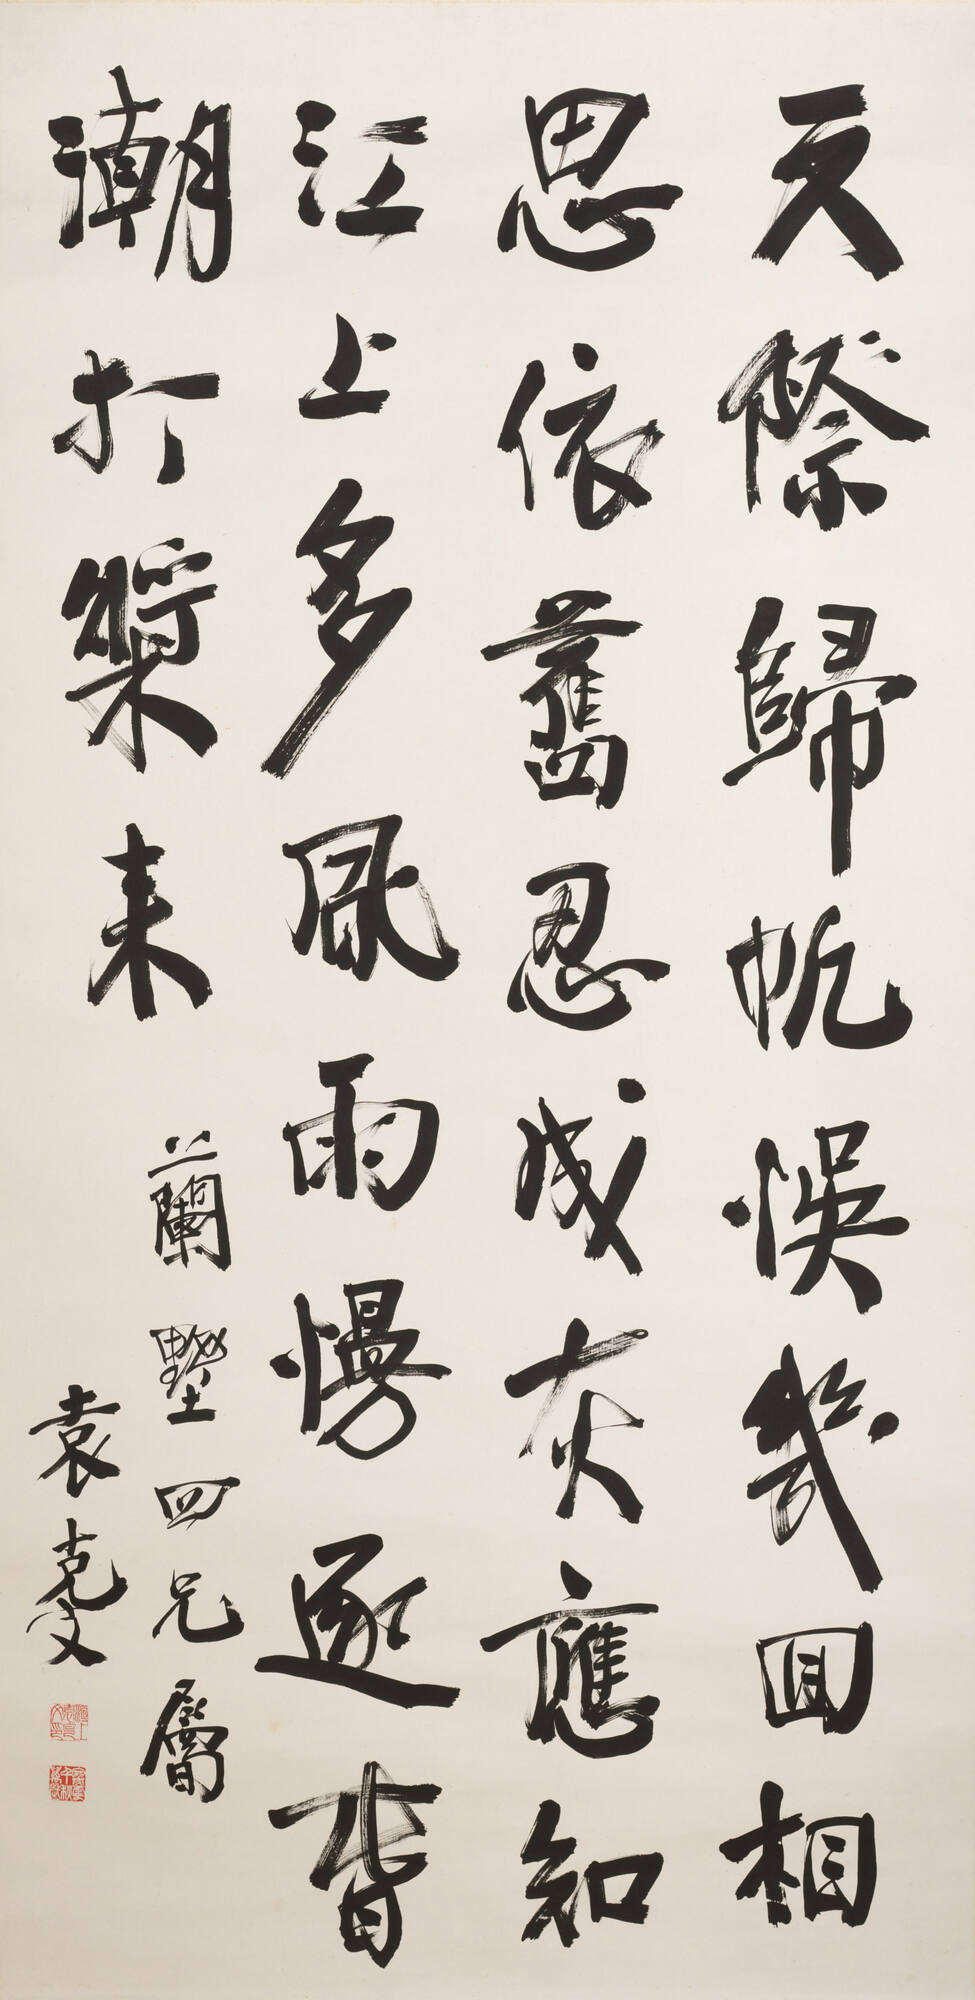 天際歸帆悞幾回相
思依舊忍成灰應知
江上多風雨慢逐春
潮打槳来
蘭墅四兄屬
袁克文